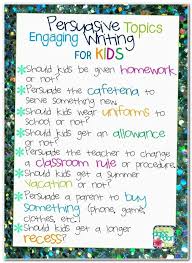 Persuasive Topics
Engaging Writing
FOR KIDS
Should kids be given homework
or not?
Persuade the cafeteria to
serve something new.
Should kids wear uniforms to
school or not?
Should kids get an allowance
or not?
Persuade the teacher to change
a classroom rule or procedure.
Should kids get a summer
vacation or not?
Persuade a parent to buy
something (phone, game,
clothes, etc.)
Should kids get a longer
recess?